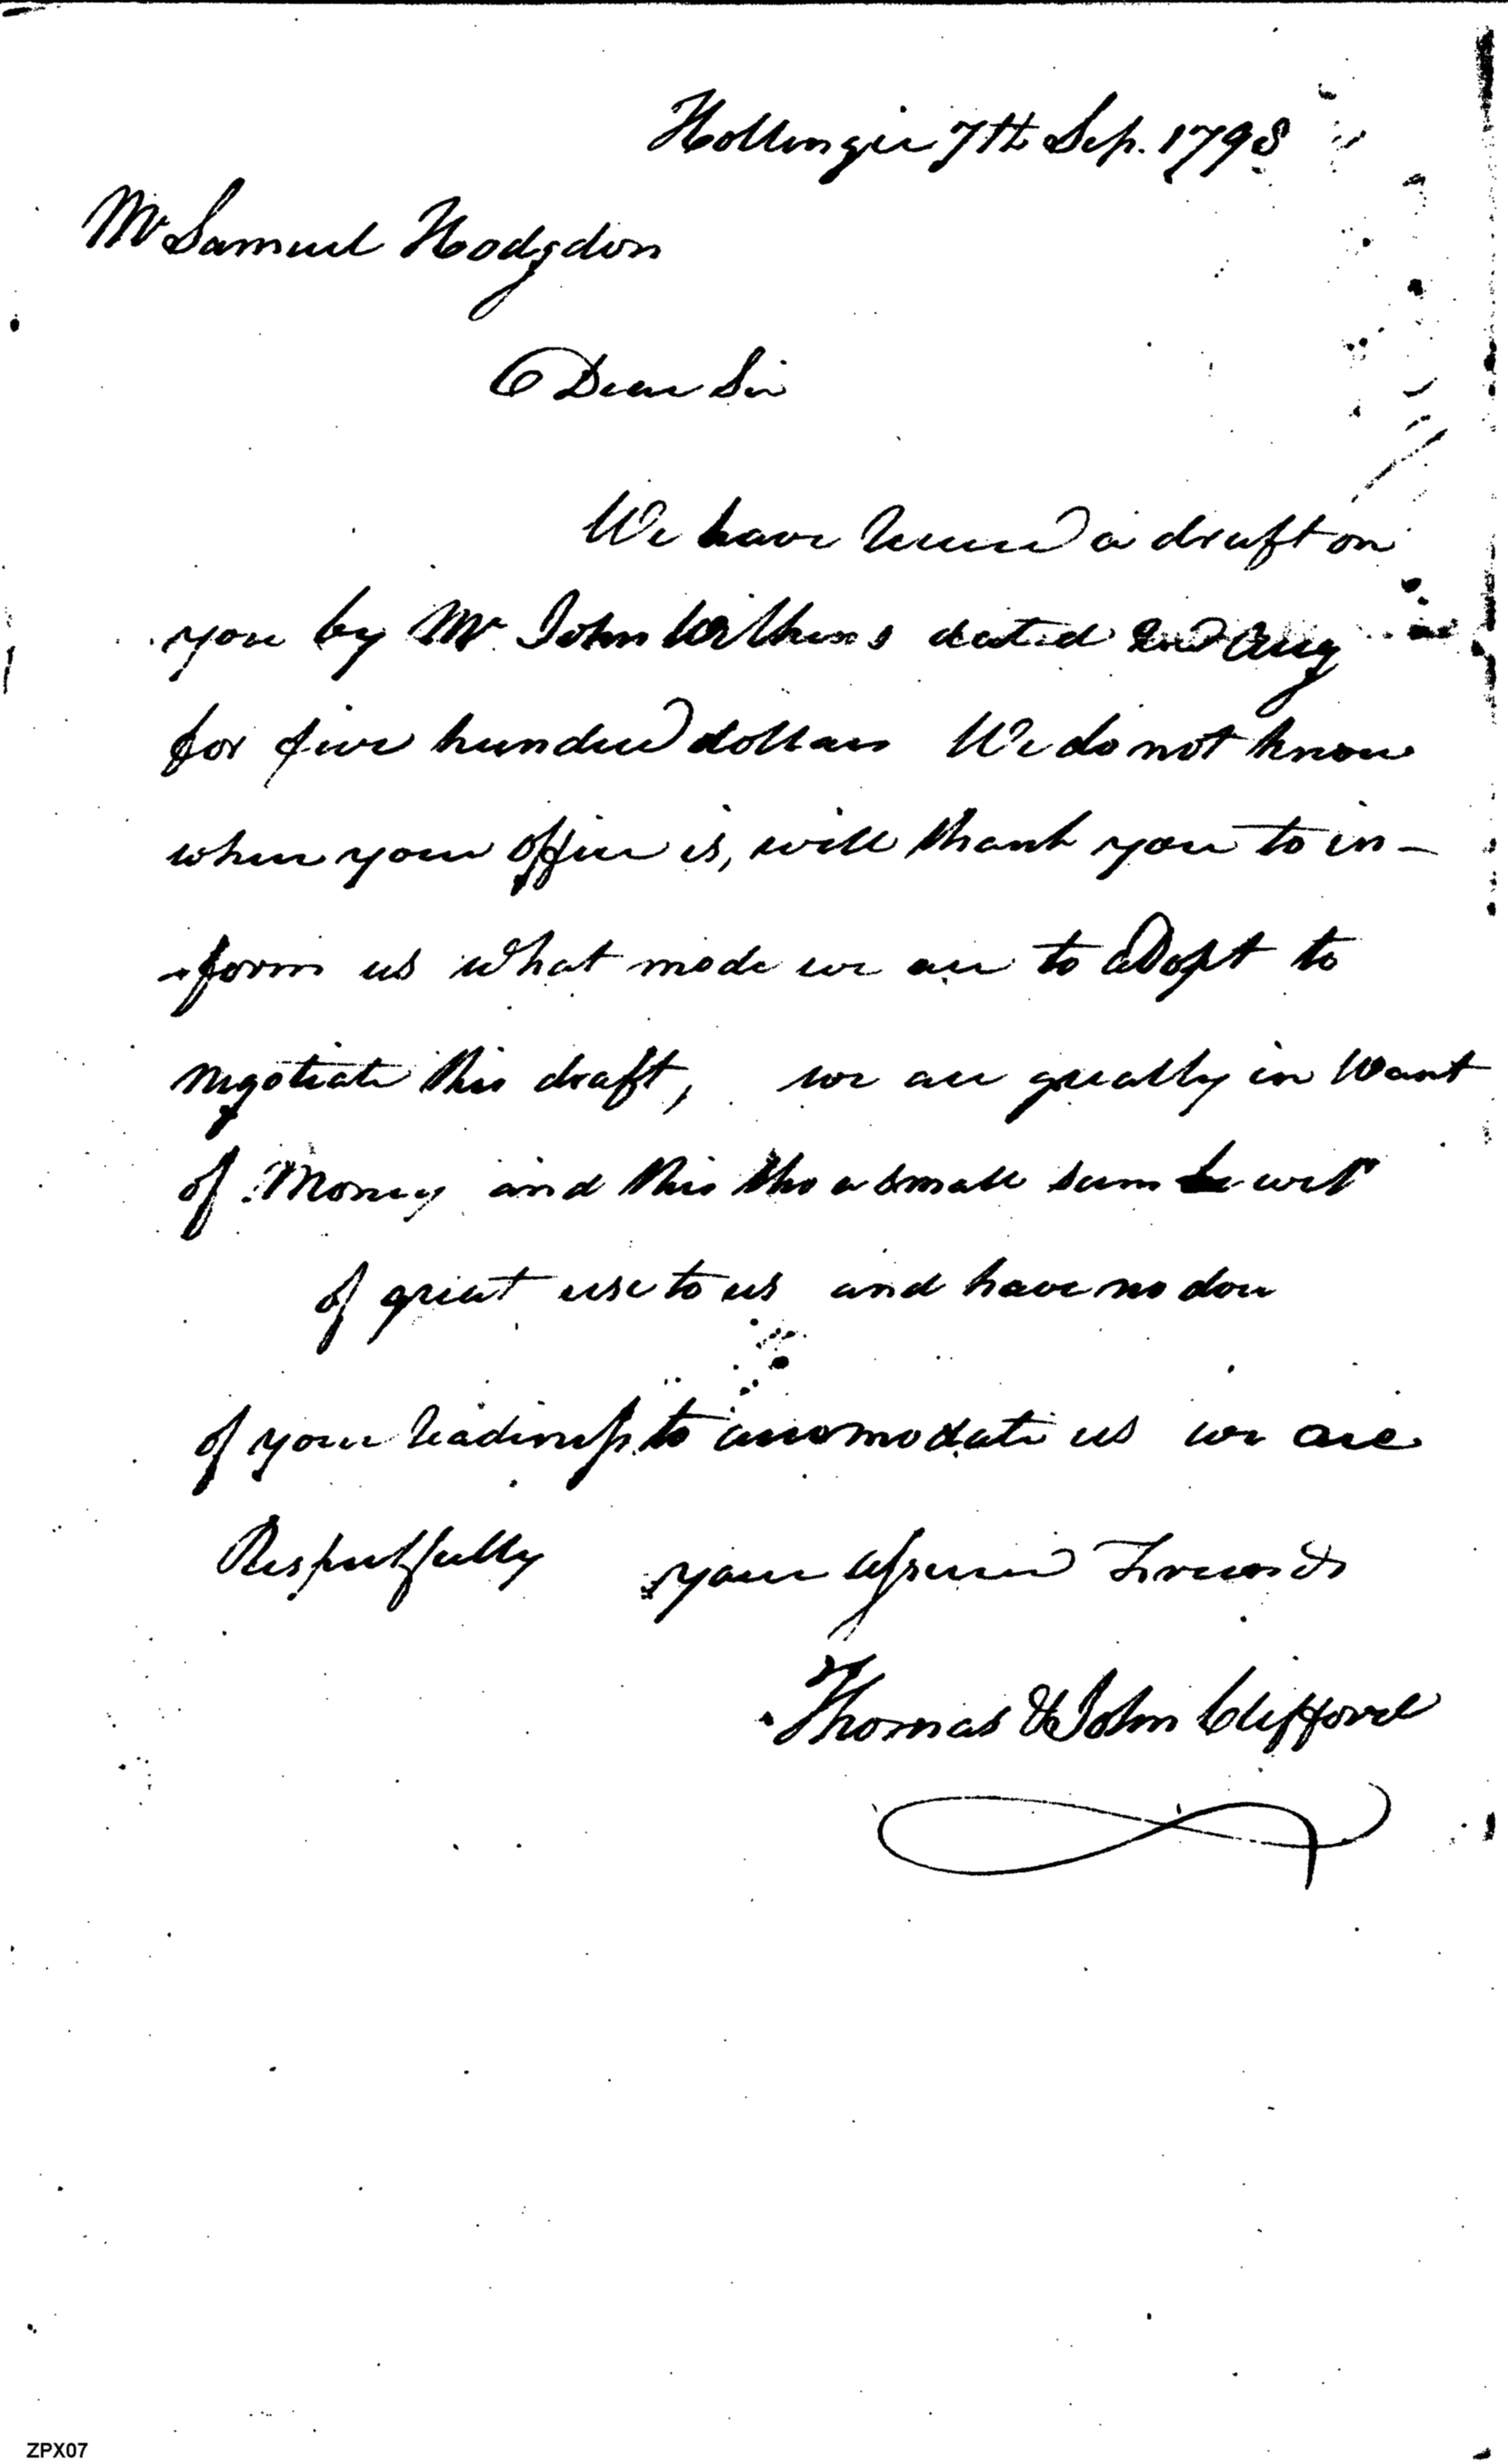 Hollingir 7th Sep. 1798
Mr Samuel Hodgdon
Dear Sir
We have a draft on
you by Mr John Wilkins dated 2nd Aug
for five hundred dollars We do not know
where your office is, will thank you to in-
-form us what mode we are to adopt to
negotiate this draft, we are greatly in Want
of Money and this tho a small sum will
of great use to us and have no dou
of your readiness to accomodate us we are
Respectfully your assured Friends
Thomas & John Clifford
ZPX07